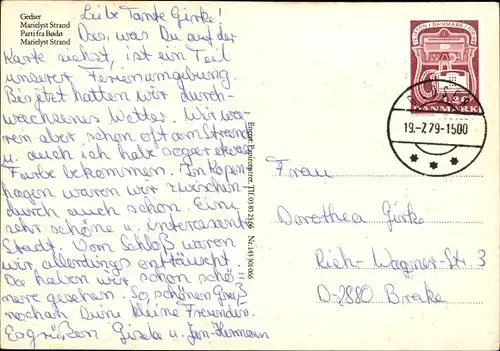 Gedser
Marielyst Strand
Parti fra Bødø
Marielyst Strand
Liebe Tante Girke!
Das, was Du auf der
Karte siehst, ist ein Teil
unserer Ferienumgebung.
Bis jetzt hatten wir durch-
wachsenes Wetter. Wir wa-
ren aber schon oft am Strand
u. auch ich habe sogar etwas
Farbe bekommen. In Kopen-
hagen waren wir zwischen-
durch auch schon. Eine
sehr schöne u. interessante
Stadt. Vom Schloß waren
wir allerdings enttäuscht.
Da haben wir schon schö-
nere gesehen. So, schönen Gruß
noch an Deine kleine Freundin.
Es grüßen Gisela u. Jan-Hermann
Eneret Papirsignet. Tlf.
Nr. 145 301 066
DANMARK
19.-7.79-1500
Frau
Dorothea Girke
Rich-Wagner-Str. 3
D-2880 Brake